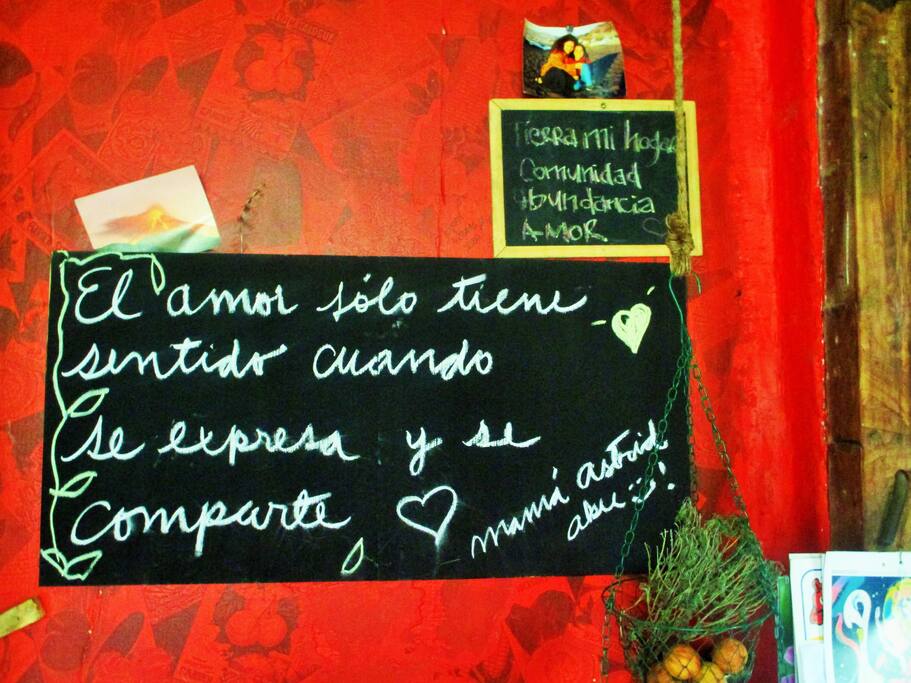 Tierra mi hogar
Comunidad
abundancia
AMOR
El amor sólo tiene
sentido cuando
se expresa y se
comparte
mamá astrid
abu !